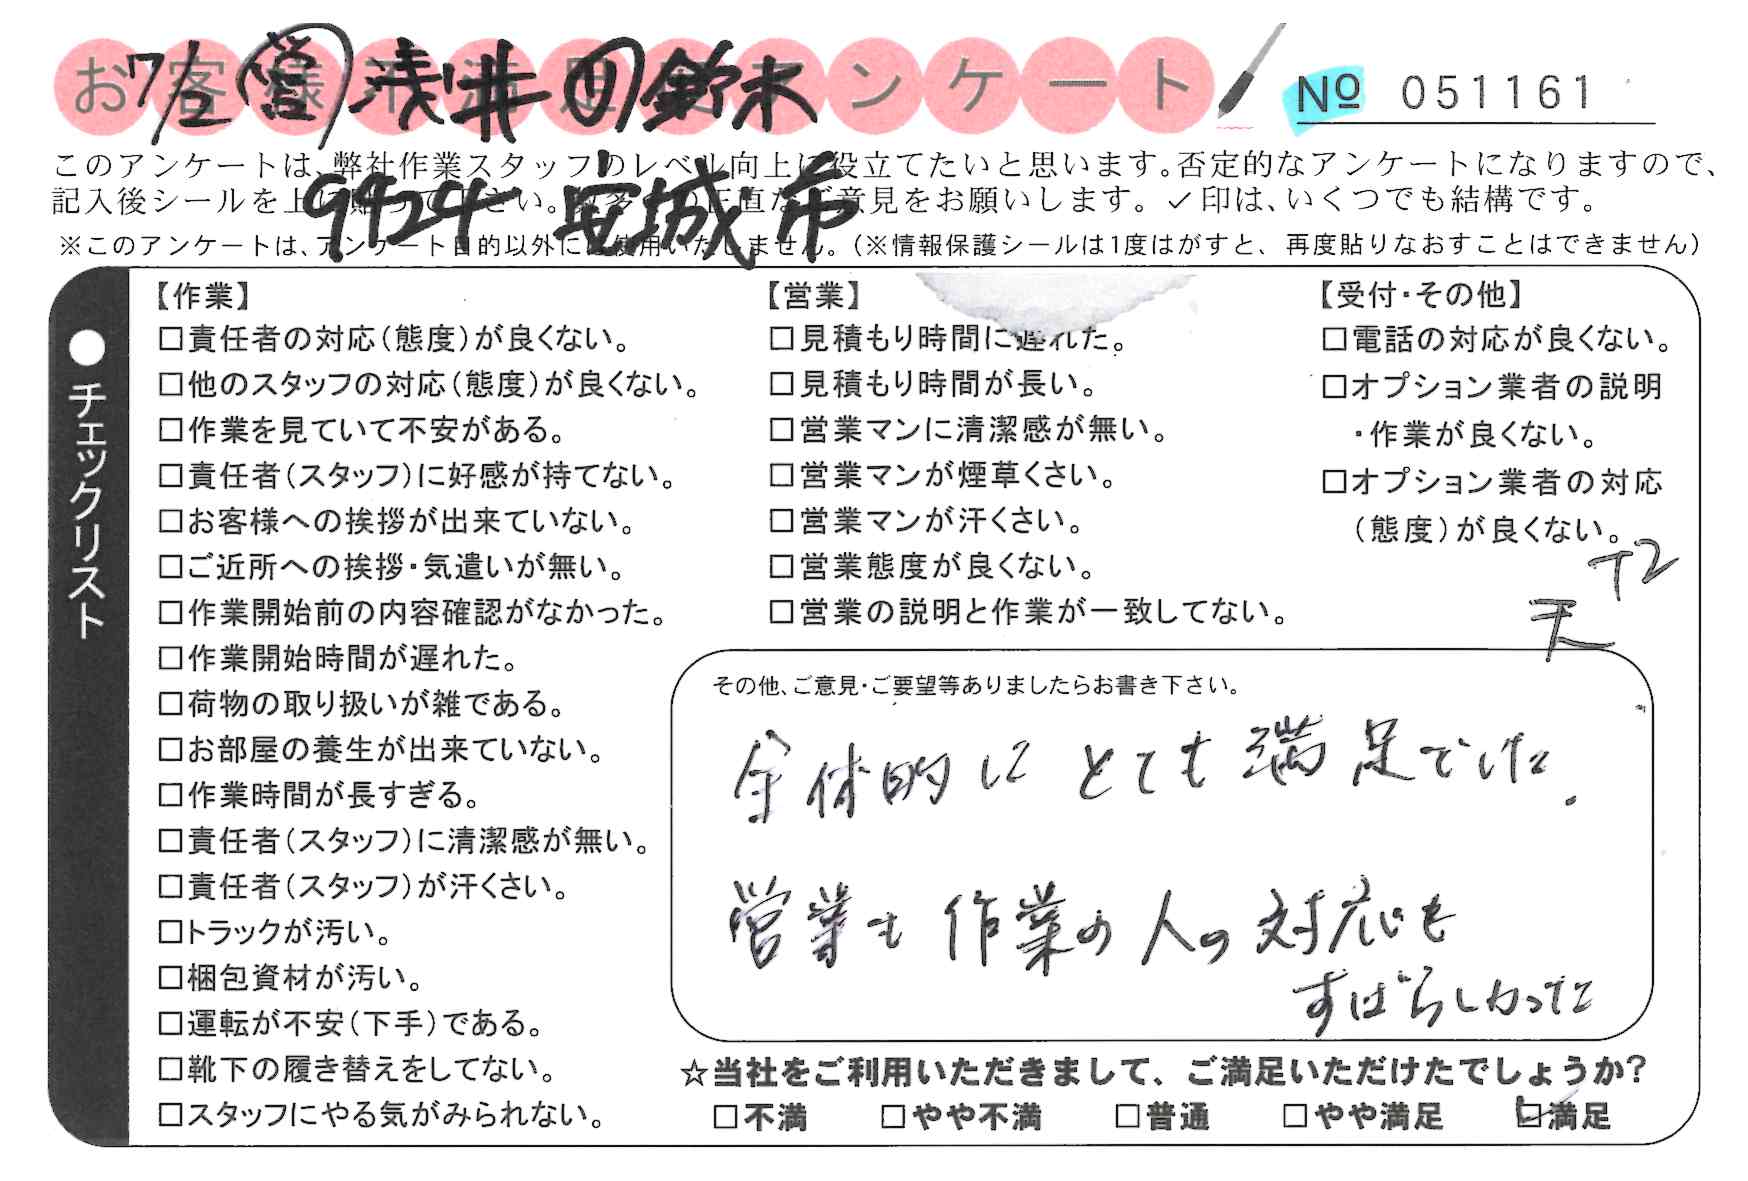 お客様不満足度アンケート
7/2 営 浅井 鈴木
No 051161
このアンケートは、弊社作業スタッフのレベル向上に役立てたいと思います。否定的なアンケートになりますので、
記入後シールを上に貼って下さい。数多くの正直なご意見をお願いします。✓印は、いくつでも結構です。
9424 安城市
※このアンケートは、アンケート目的以外には使用いたしません。(※情報保護シールは1度はがすと、再度貼りなおすことはできません)
●チェックリスト
【作業】
□責任者の対応(態度)が良くない。
□他のスタッフの対応(態度)が良くない。
□作業を見ていて不安がある。
□責任者(スタッフ)に好感が持てない。
□お客様への挨拶が出来ていない。
□ご近所への挨拶・気遣いが無い。
□作業開始前の内容確認がなかった。
□作業開始時間が遅れた。
□荷物の取り扱いが雑である。
□お部屋の養生が出来ていない。
□作業時間が長すぎる。
□責任者(スタッフ)に清潔感が無い。
□責任者(スタッフ)が汗くさい。
□トラックが汚い。
□梱包資材が汚い。
□運転が不安(下手)である。
□靴下の履き替えをしてない。
□スタッフにやる気がみられない。
【営業】
□見積もり時間に遅れた。
□見積もり時間が長い。
□営業マンに清潔感が無い。
□営業マンが煙草くさい。
□営業マンが汗くさい。
□営業態度が良くない。
□営業の説明と作業が一致してない。
【受付・その他】
□電話の対応が良くない。
□オプション業者の説明
・作業が良くない。
□オプション業者の対応
(態度)が良くない。
その他、ご意見・ご要望等ありましたらお書き下さい。
全体的に とても 満足でした.
営業も 作業の 人の 対応も
すばらしかった
☆当社をご利用いただきまして、ご満足いただけたでしょうか?
□不満 □やや不満 □普通 □やや満足 ☑満足